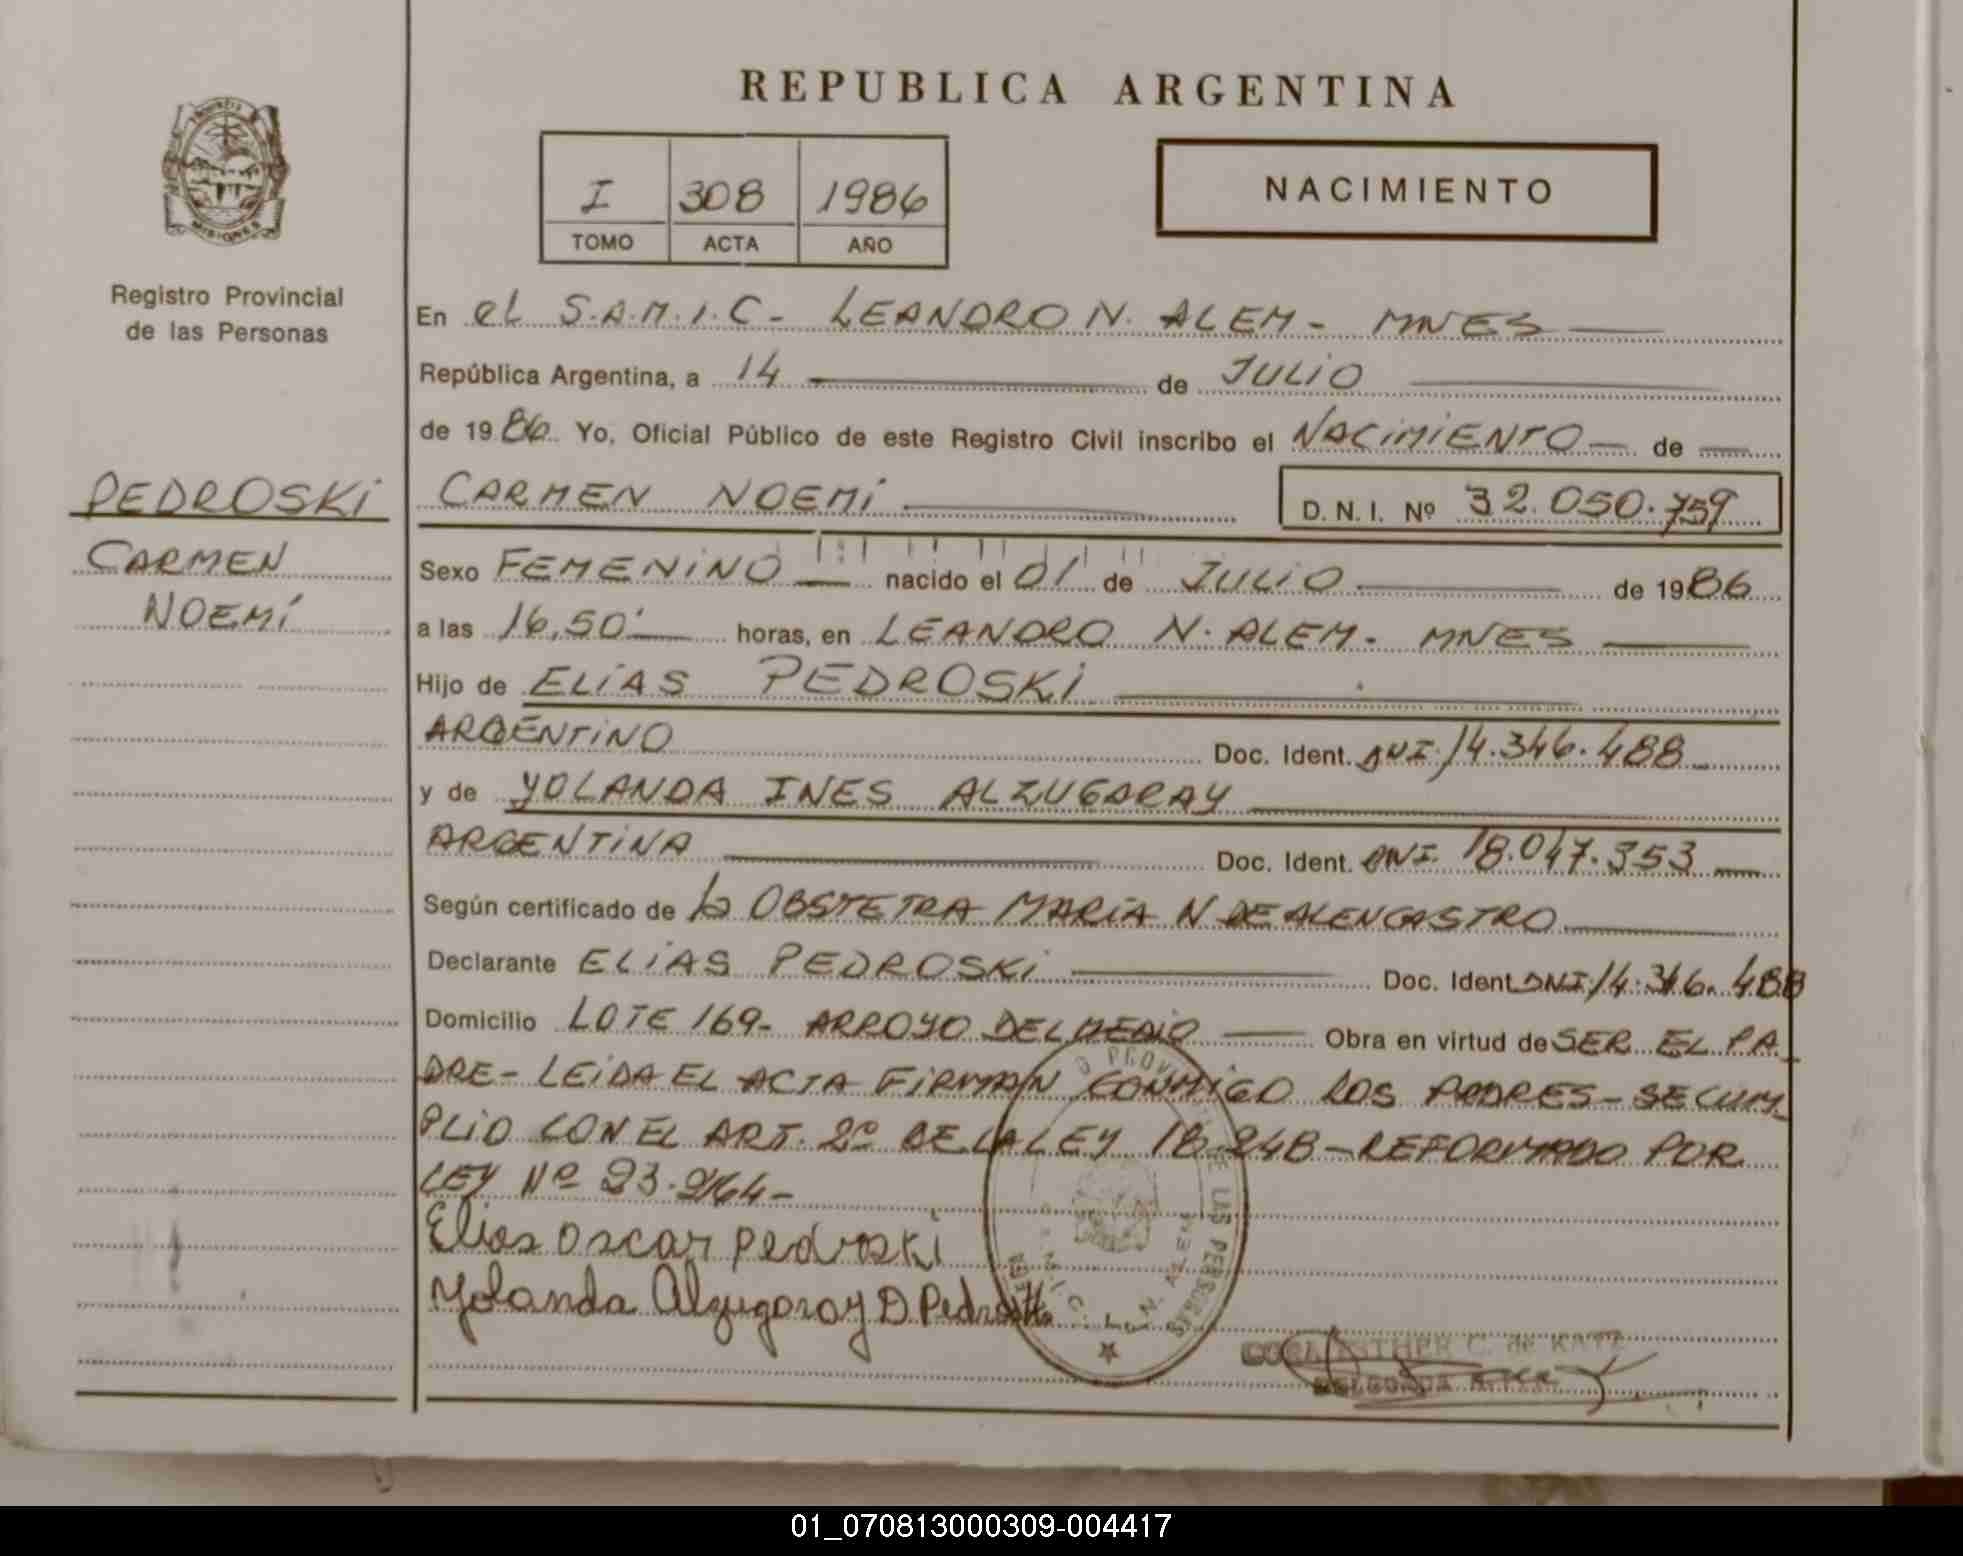 REPUBLICA ARGENTINA
MISIONES
I 308 1986
TOMO ACTA AÑO
NACIMIENTO
Registro Provincial
de las Personas
PEDROSKI
CARMEN
NOEMÍ
En el S.A.M.I.C- LEANDRO N. ALEM- MNES
República Argentina, a 14 de JULIO
de 1986 Yo, Oficial Público de este Registro Civil inscribo el NACIMIENTO de
CARMEN NOEMI D. N. I. Nº 32.050.759
Sexo FEMENINO nacido el 01 de JULIO de 1986
a las 16,50' horas, en LEANDRO N. ALEM- MNES
Hijo de ELIAS PEDROSKI
ARGENTINO Doc. Ident. DNI. 14.346.488
y de YOLANDA INES ALZUGARAY
ARGENTINA Doc. Ident. DNI. 18.047.353
Según certificado de la OBSTETRA MARIA N DE ALENCASTRO
Declarante ELIAS PEDROSKI Doc. Ident DNI. 14.346.488
Domicilio LOTE 169- ARROYO DEL MEDIO Obra en virtud de SER EL PA_
DRE- LEIDA EL ACTA FIRMAN CONMIGO LOS PADRES- SE CUM_
PLIO CON EL ART. 2º DE LA LEY 18.248-REFORMADO POR
LEY Nº 23.264-
Elias Oscar Pedroski
Yolanda Alzugaray D Pedroski
DE LAS PERSONAS
L. N. ALEM
ESTHER C. de KATZ
DELEGADA
01_070813000309-004417